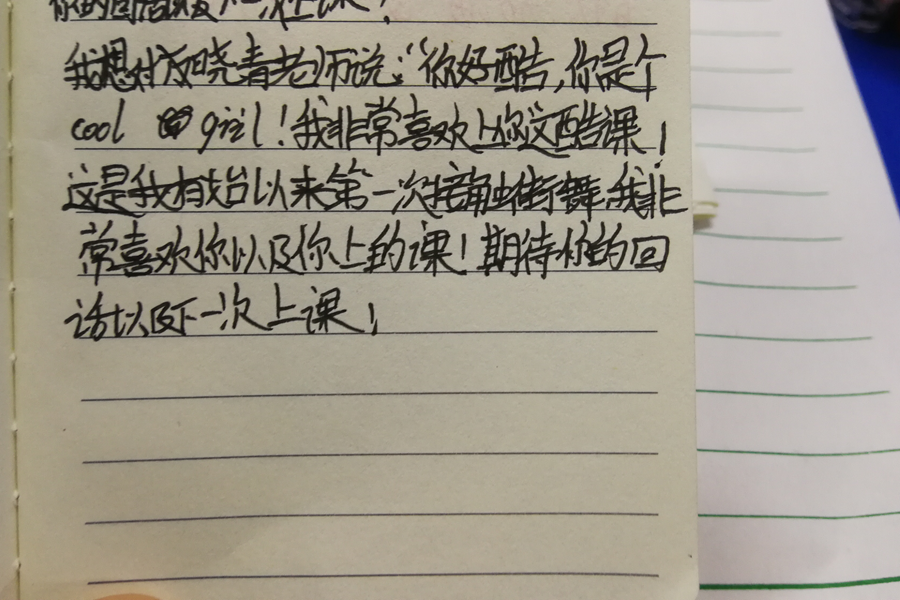 你的回话以及下一次上课！
我想对友晓青老师说：“你好酷，你是个
cool girl！我非常喜欢上你这酷课！
这是我有始以来第一次接触街舞，我非
常喜欢你以及你上的课！期待你的回
话以及下一次上课！